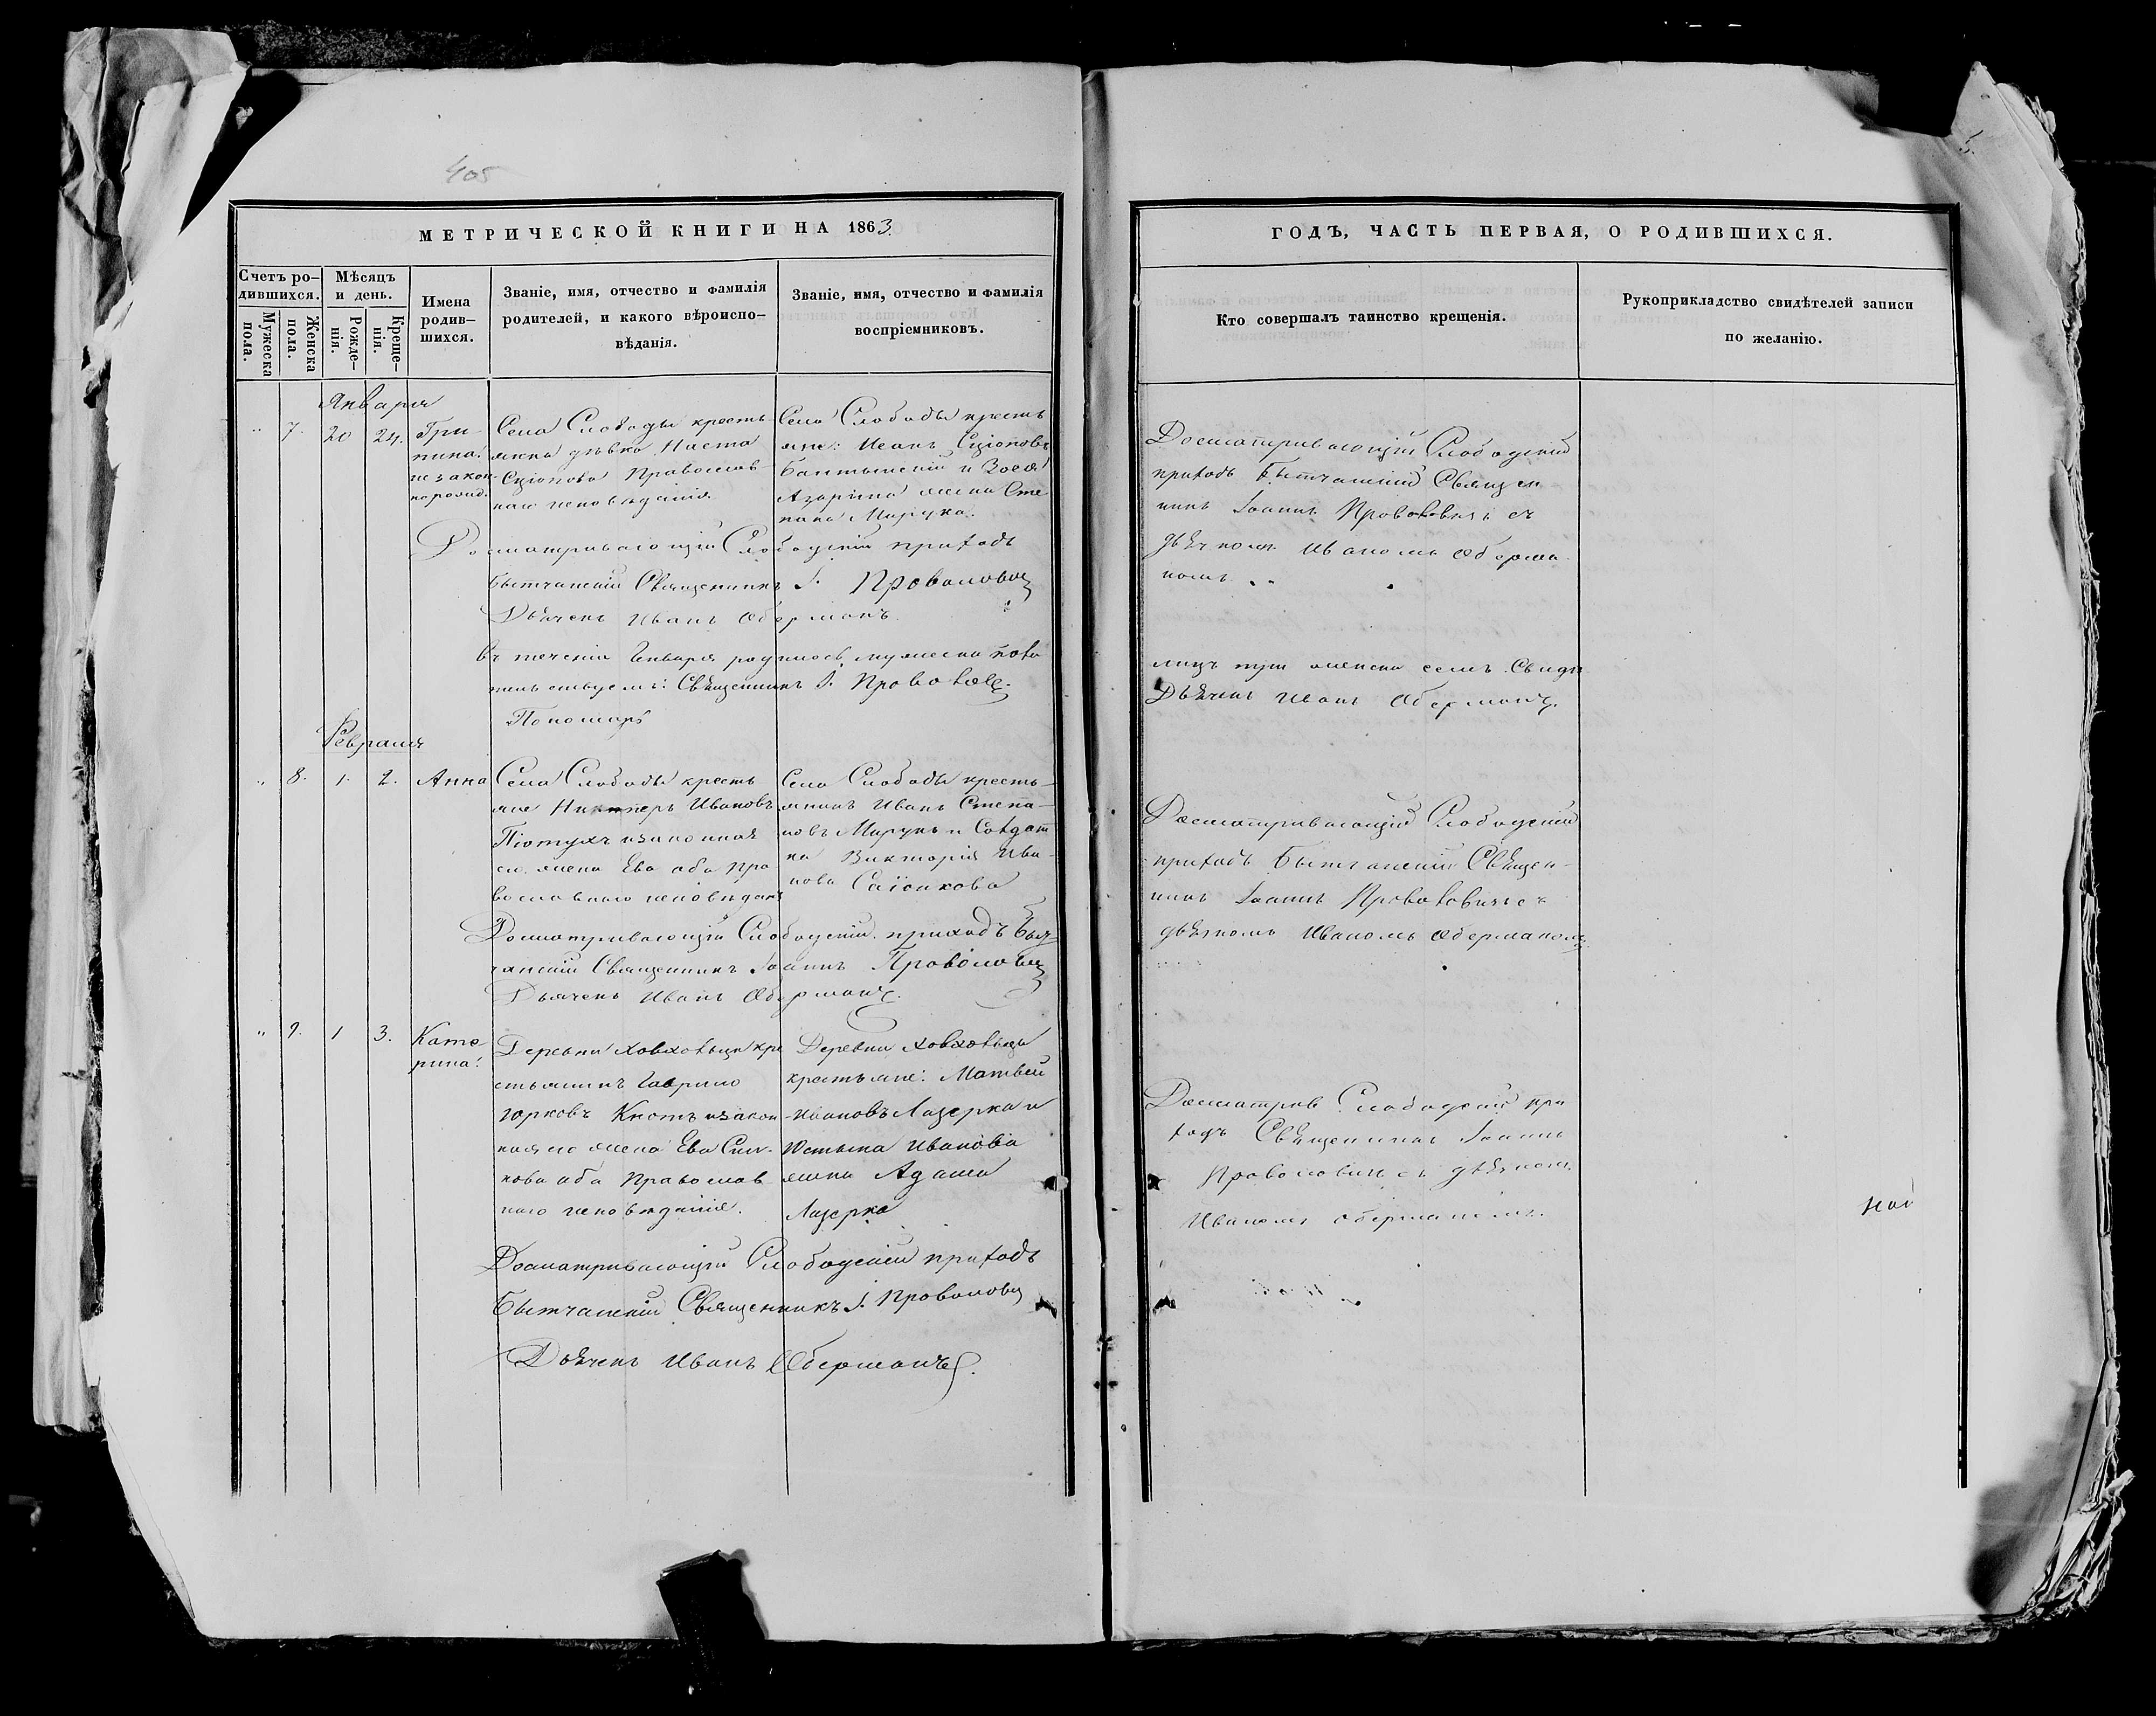 405
5.
МЕТРИЧЕСКОЙ КНИГИ НА 1863.
Счетъ ро-
дившихся.
Мужеска
пола.
Женска
пола.
Мѣсяцъ
и день.
Рожде-
нія.
Креще-
нія.
Имена
родив-
шихся.
Званіе, имя, отчество и фамилія
родителей, и какого вѣроиспо-
вѣданія.
Званіе, имя, отчество и фамилія
воспріемниковъ.
Января
7. 20 24.
Гри-
пина
незакон-
норожд.
Села Слободы кресть-
янка дѣвка Наста
Православ-
наго исповѣданія
Села Слободы кресть
яне: Иванъ
и Зося
жена Сте
пана Мирука.
Досматривающій Слободскій приходъ
Бытчанскій Священникъ I. Проволовичъ
Дьячекъ Иванъ Оберманъ.
въ теченіи Января родилось мужеска пола
Священникъ I.
Пономарь
Февраля
8. 1. 2. Анна
Села Слободы кресть
яне Никиперъ Ивановъ
Пютухъ и законная
его жена Ева оба Пра
вославнаго исповѣданія
Села Слободы кресть-
янинъ Иванъ Степа-
новъ Мирукъ и Солдат
ка Викторія Ива-
нова
Досматривающій Слободскій приходъ Быт
чанскій Священникъ Іоаннъ Проволовичъ
Дьячекъ Иванъ Оберманъ.
9. 1 3.
Кате-
рина.
Деревни кре
стьянинъ Гаврило
Юрковъ Кнотъ и закон-
ная его жена Ева
оба Православ
наго исповѣданія.
Деревни
крестьяне: Матвей
Ивановъ Лазерка и
Юстына Иванова
жена Адама
Лазерка
Досматривающій Слободскій приходъ
Бытчанскій Священникъ I. Проволовичъ
Дьячекъ Иванъ Оберманъ.
ГОДЪ, ЧАСТЬ ПЕРВАЯ, О РОДИВШИХСЯ.
Кто совершалъ таинство крещенія.
Рукоприкладство свидѣтелей записи
по желанію.
Досматривающій Слободскій
приходъ Бытчанскій Священ
никъ Іоаннъ Проволовичъ съ
дьячкомъ Иваномъ Оберма
номъ
женска семь. Свидѣ
Дьячекъ Иванъ Оберманъ.
Досматривающій Слободскій
приходъ Бытчанскій Священ-
никъ Іоаннъ Проволовичъ съ
дьячкомъ Иваномъ Оберманомъ
Досматрив. Слободскій при
ходъ Священникъ Іоаннъ
Проволовичъ съ дьячкомъ
Иваномъ Оберманомъ.